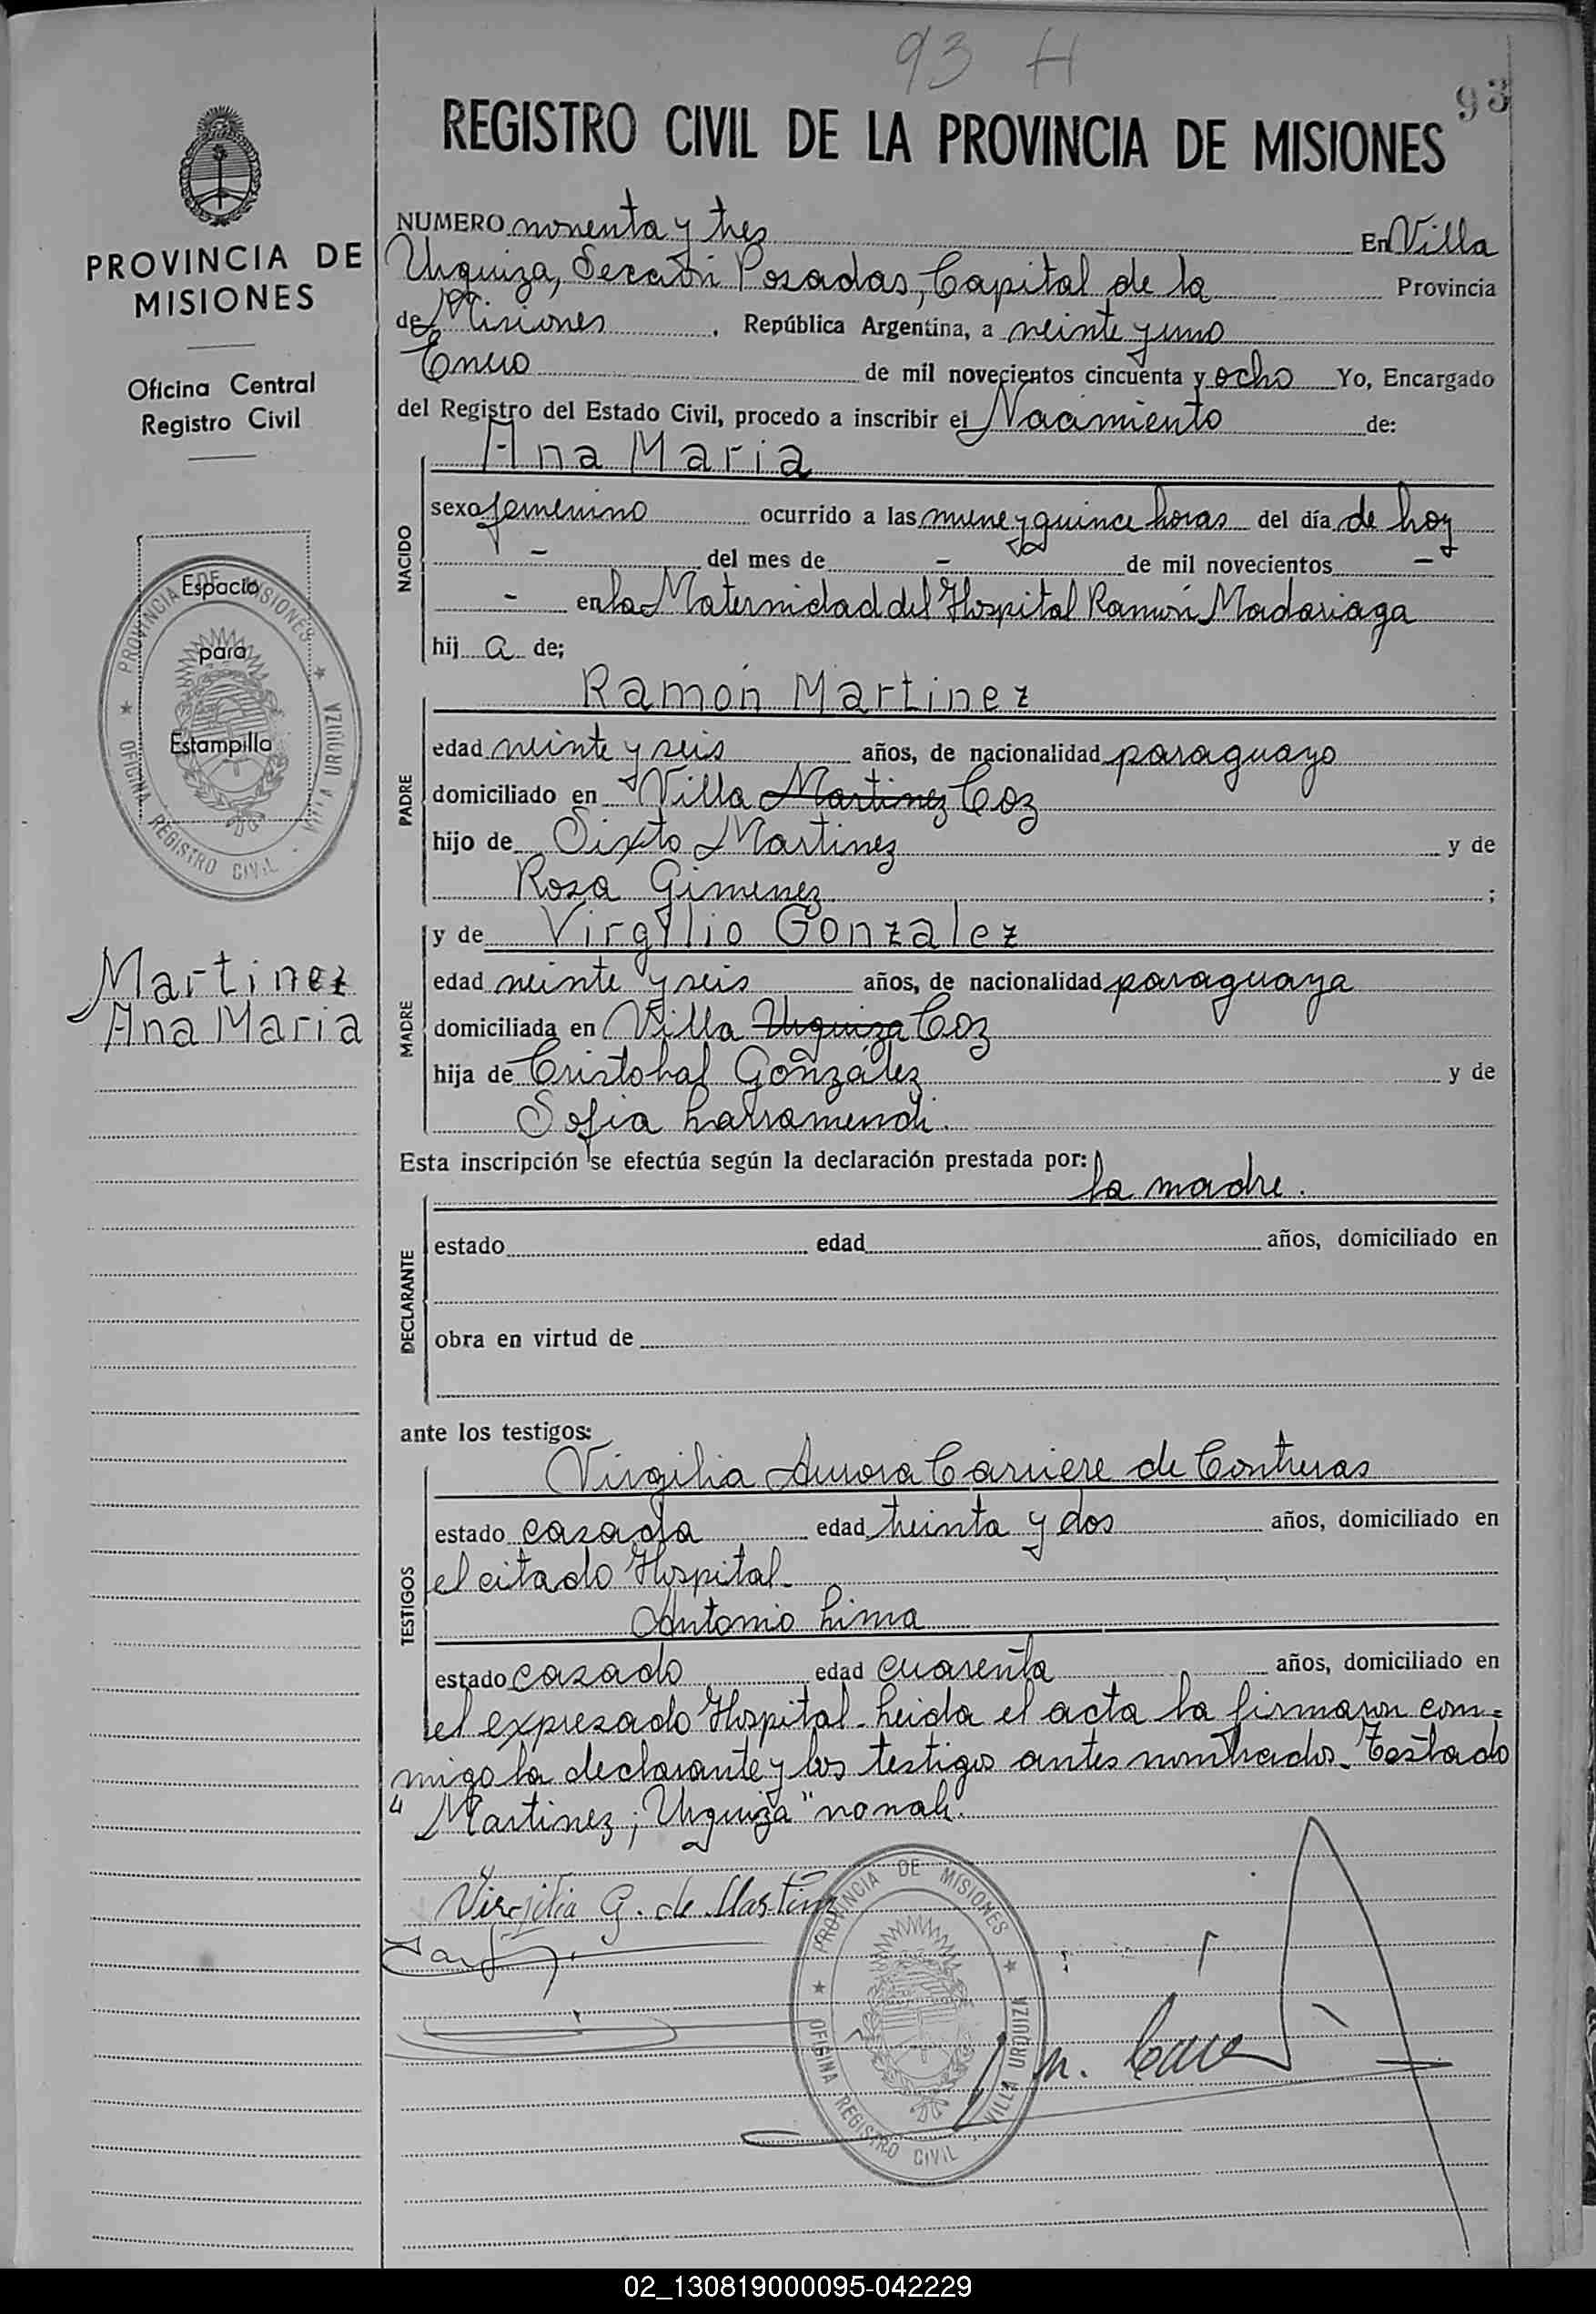 93 H
93
REGISTRO CIVIL DE LA PROVINCIA DE MISIONES
PROVINCIA DE
MISIONES
Oficina Central
Registro Civil
Espacio
para
Estampilla
PROVINCIA DE MISIONES
OFICINA REGISTRO CIVIL - VILLA URQUIZA
Martinez
Ana Maria
NUMERO noventa y tres En Villa
Urquiza, Sección Posadas, Capital de la Provincia
de Misiones, República Argentina, a veinte y uno
Enero de mil novecientos cincuenta y ocho Yo, Encargado
del Registro del Estado Civil, procedo a inscribir el Nacimiento de:
NACIDO
Ana Maria
sexo femenino ocurrido a las nueve y quince horas del día de hoy
- del mes de - de mil novecientos -
- en la Maternidad del Hospital Ramón Madariaga
hij a de;
PADRE
Ramón Martinez
edad veinte y seis años, de nacionalidad paraguayo
domiciliado en Villa Martinez Coz
hijo de Sixto Martinez y de
Rosa Gimenez ;
MADRE
y de Virgilio Gonzalez
edad veinte y seis años, de nacionalidad paraguaya
domiciliada en Villa Urquiza Coz
hija de Cristobal González y de
Sofia Larramendi.
Esta inscripción se efectúa según la declaración prestada por:
la madre.
DECLARANTE
estado edad años, domiciliado en
obra en virtud de
ante los testigos:
TESTIGOS
Virgilia Aurora Carriere de Contreras
estado casada edad treinta y dos años, domiciliado en
el citado Hospital-
Antonio Lima
estado casado edad cuarenta años, domiciliado en
el expresado Hospital- Leida el acta la firmaron con=
migo la declarante y los testigos antes nombrados- Testado
"Martinez; Urquiza" no vale.
Virgilia G. de Martinez
PROVINCIA DE MISIONES
OFISINA REGISTRO CIVIL - VILLA URQUIZA
02_130819000095-042229